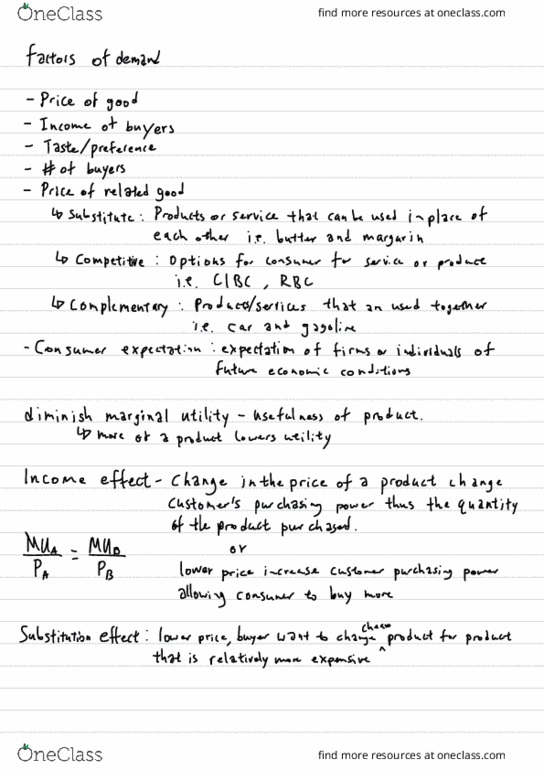 OneClass
find more resources at oneclass.com
factors of demand
- Price of good
- Income of buyers
- Taste/preference
- # of buyers
- Price of related good
↳ Substitute : Products or service that can be used in place of
each other i.e. butter and margarin
↳ Competitive : options for consumer for service or product
i.e. CIBC , RBC
↳ Complementary : Products/services that an used together
i.e. car and gasoline
- Consumer expectation : expectation of firms or individuals of
future economic conditions
diminish marginal utility - usefulness of product.
↳ more of a product lowers utility
Income effect - Change in the price of a product change
customer's purchasing power thus the quantity
of the product purchased.
MUA/PA = MUB/PB
or
lower price increase customer purchasing power
allowing consumer to buy more
Substitution effect : lower price, buyer want to change cheap product for product
that is relatively more expensive
OneClass
find more resources at oneclass.com